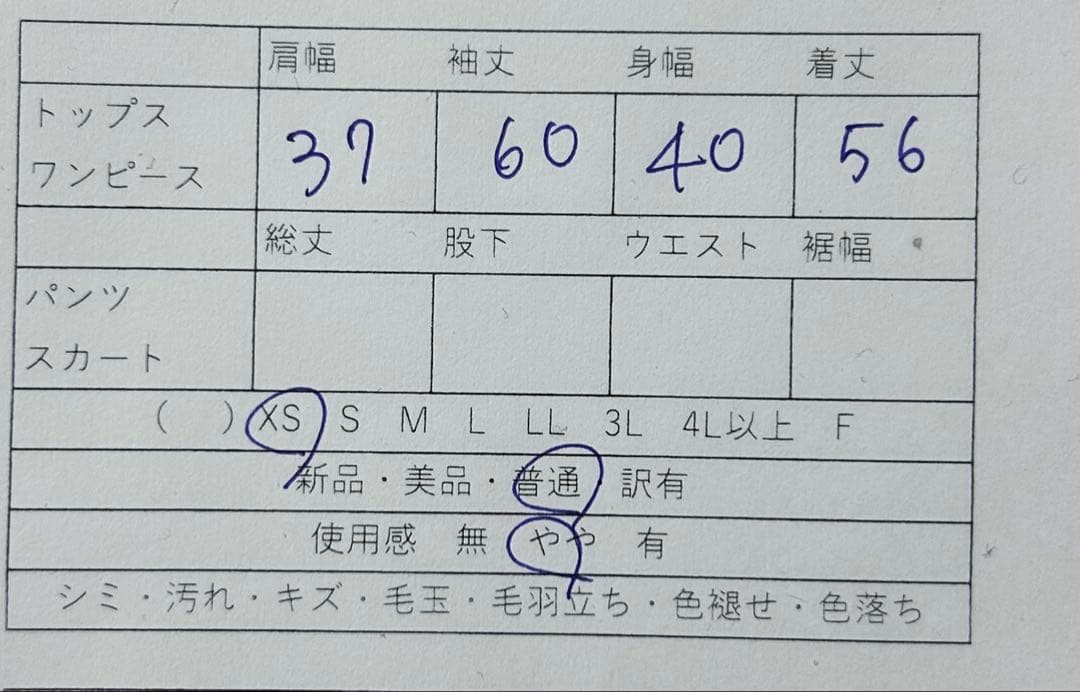 肩幅 袖丈 身幅 着丈
トップス
ワンピース
37 60 40 56
総丈 股下 ウエスト 裾幅
パンツ
スカート
( ) XS S M L LL 3L 4L以上 F
新品・美品・普通・訳有
使用感 無 やや 有
シミ・汚れ・キズ・毛玉・毛羽立ち・色褪せ・色落ち